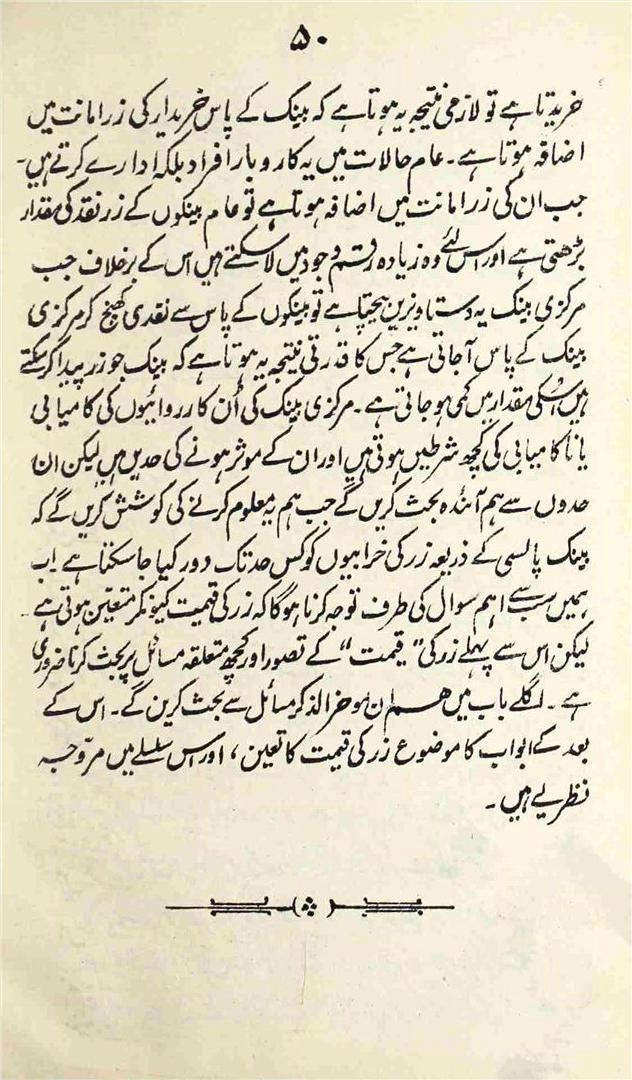 ۵۰
خریدتا ہے تو لازمی نتیجہ یہ ہوتا ہے کہ بینک کے پاس خریدار کی زر امانت میں
اضافہ ہوتا ہے۔ عام حالات میں یہ کاروبار افراد بلکہ ادارے کرتے ہیں۔
جب ان کی زر امانت میں اضافہ ہوتا ہے تو عام بینکوں کے زر نقد کی مقدار
بڑھتی ہے اور اس لئے وہ زیادہ رقم وجود میں لا سکتے ہیں اس کے برخلاف جب
مرکزی بینک یہ دستاویزیں بیچتا ہے تو بینکوں کے پاس سے نقدی کھنچ کر مرکزی
بینک کے پاس آجاتی ہے جس کا قدرتی نتیجہ یہ ہوتا ہے کہ بینک جو زر پیدا کرسکتے
ہیں اسکی مقدار میں کمی ہوجاتی ہے۔ مرکزی بینک کی اُن کارروائیوں کی کامیابی
یا ناکامیابی کی کچھ شرطیں ہوتی ہیں اور ان کے موثر ہونے کی حدیں ہیں لیکن ان
حدوں سے ہم آئندہ بحث کریں گے جب ہم یہ معلوم کرنے کی کوشش کریں گے کہ
بینک پالسی کے ذریعہ زر کی خرابیوں کو کس حد تک دور کیا جاسکتا ہے اب
ہمیں سب سے اہم سوال کی طرف توجہ کرنا ہوگا کہ زر کی قیمت کیونکر متعین ہوتی ہے
لیکن اس سے پہلے زر کی "قیمت" کے تصور اور کچھ متعلقہ مسائل پر بحث کرنا ضروری
ہے۔ اگلے باب میں ہم ان موخر الذکر مسائل سے بحث کریں گے۔ اس کے
بعد کے ابواب کا موضوع زر کی قیمت کا تعین، اور اس سلسلے میں مروّجہ
نظریے ہیں۔